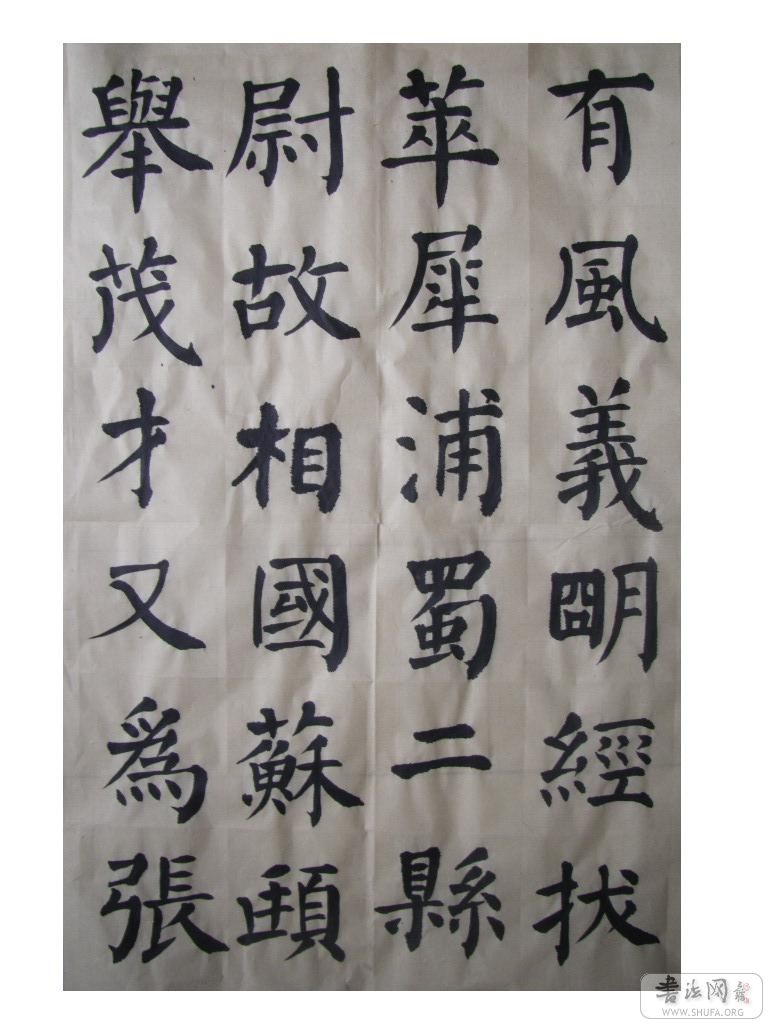 有風義明經拔
萃犀浦蜀二縣
尉故相國蘇頲
舉茂才又爲張
書法网
WWW.SHUFA.ORG